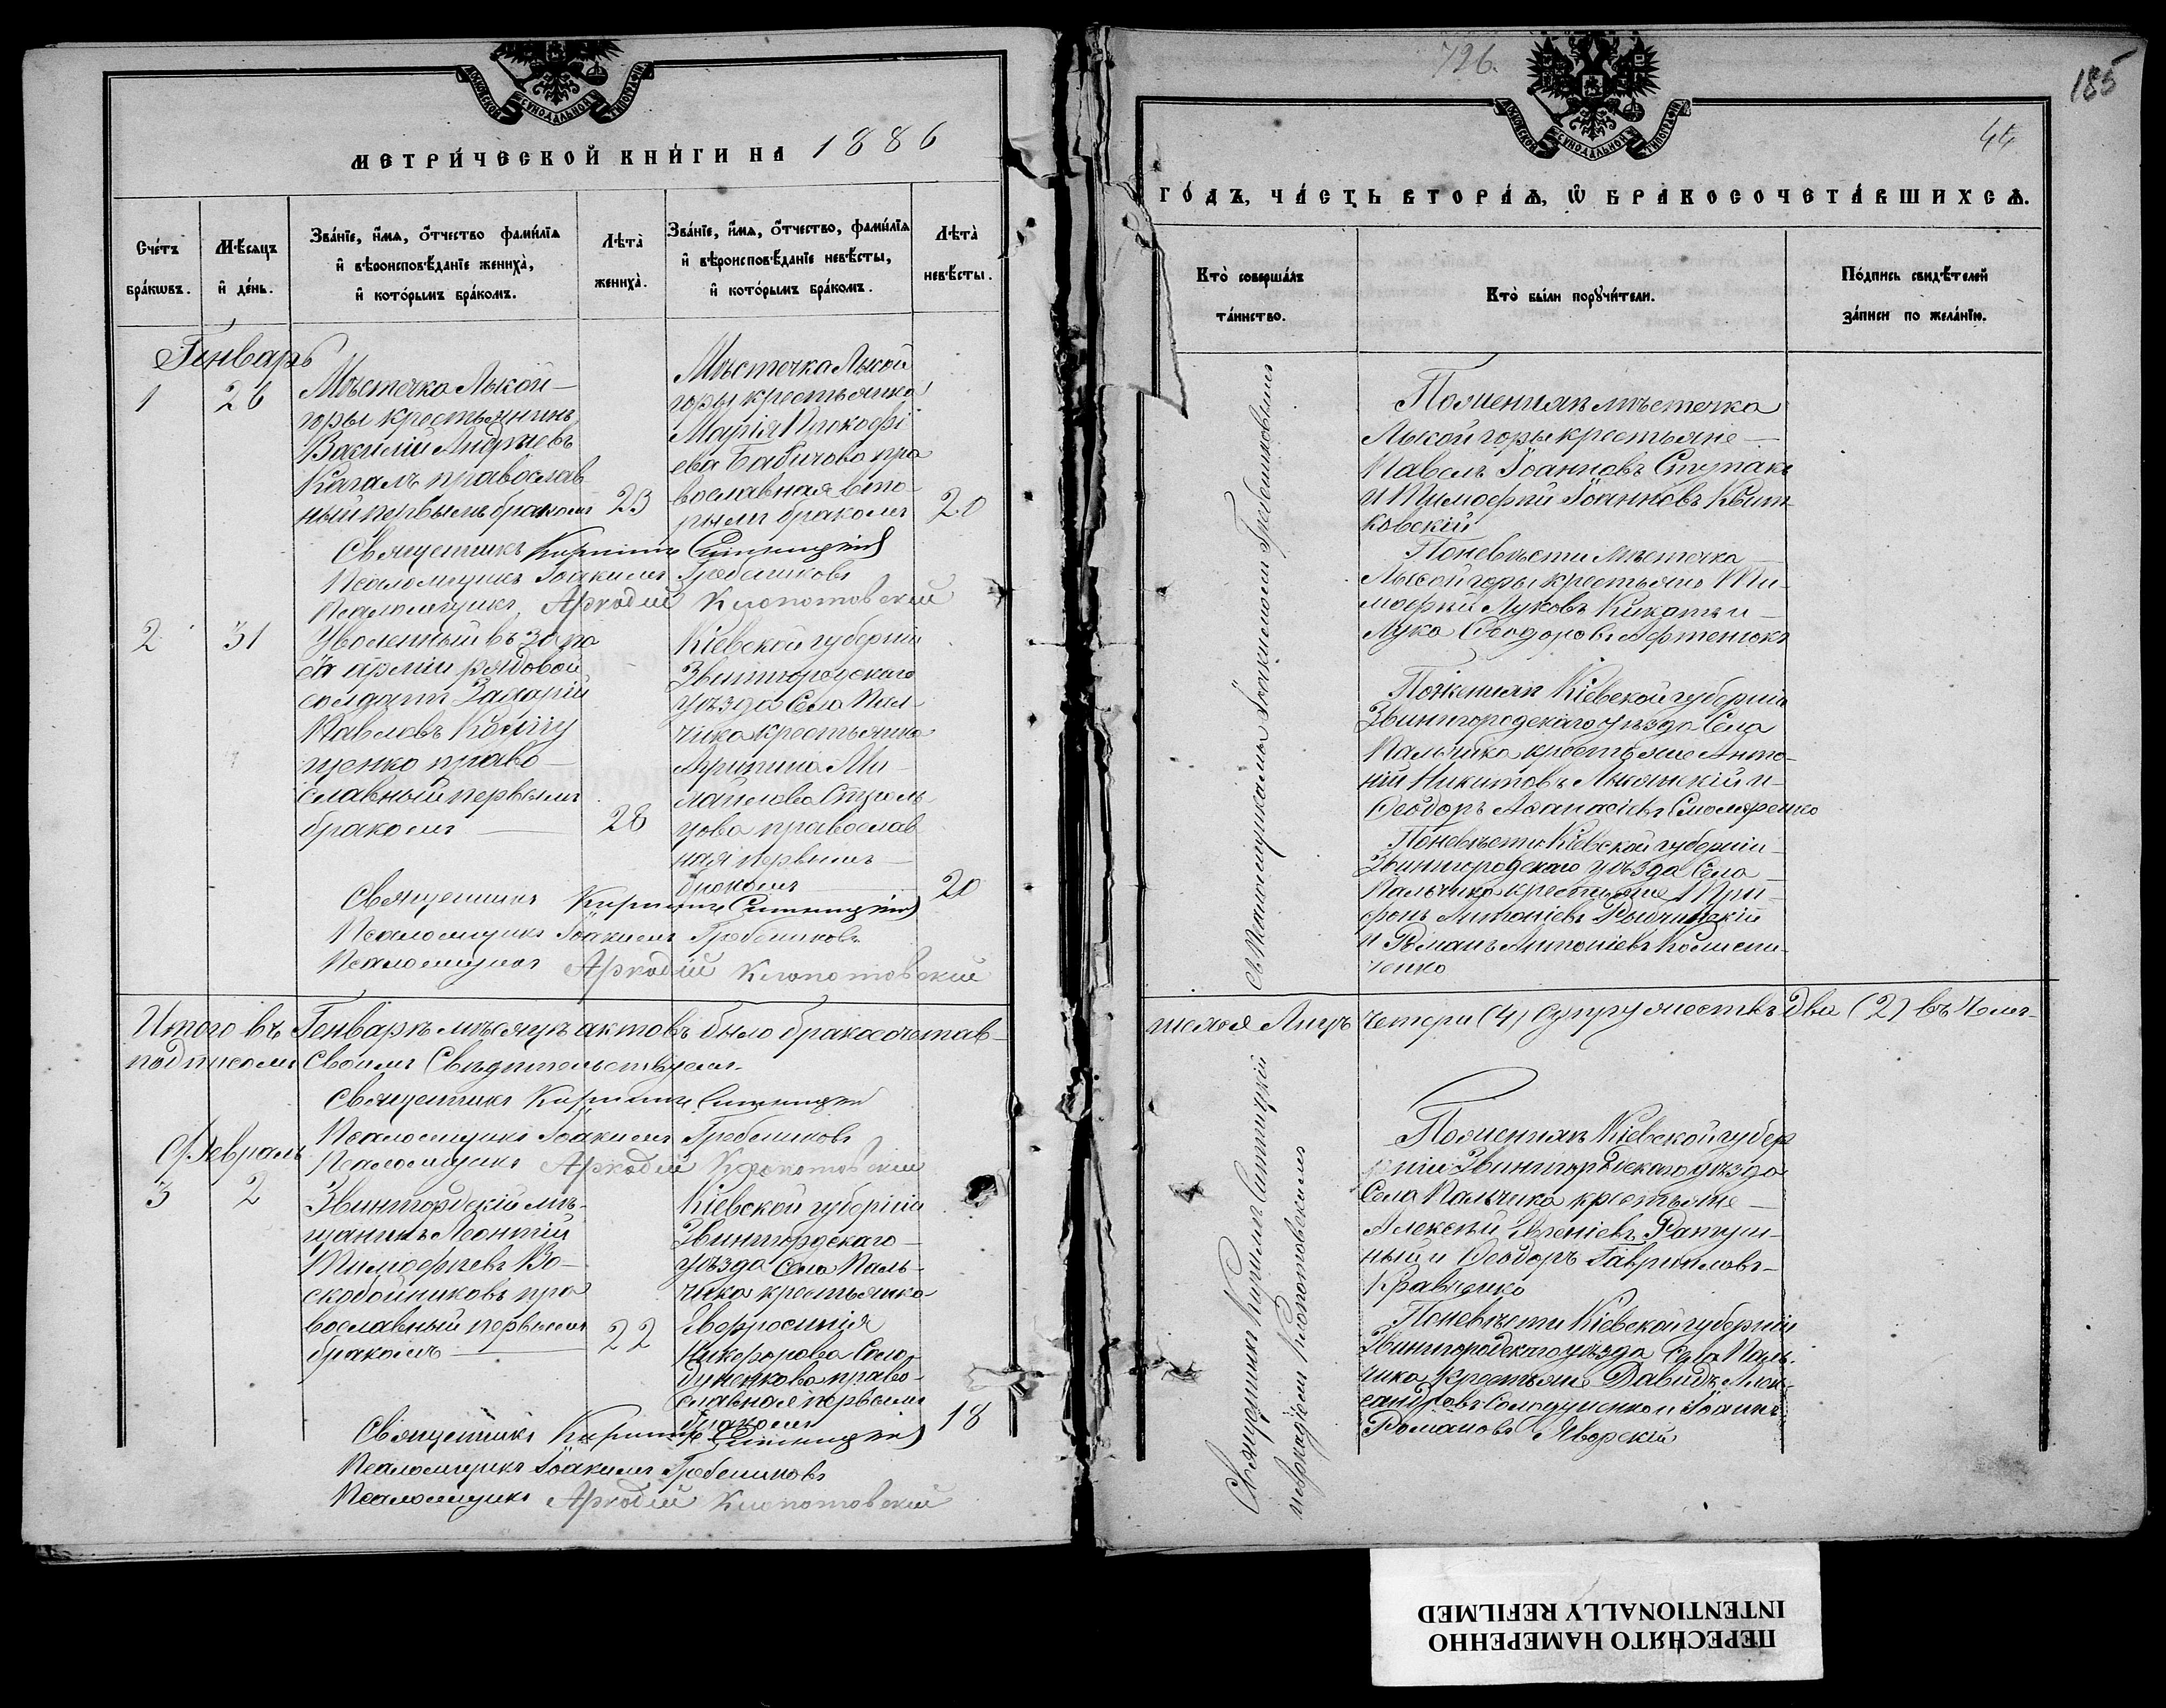 МОСКОВСКОЙ СѴНОДАЛЬНОЙ ТИПОГРАФІИ
МЕТРИ́ЧЕСКОЙ КНИ́ГИ НА 1886
Сче́тъ бра́кѡвъ.
Мѣ́сяцъ и҆ де́нь.
Зва́нїе, и҆́мя, ѻ҆́тчество фами́лїя
и҆ вѣроисповѣ́данїе жениха̀,
и҆ кото́рымъ бра́комъ.
Лѣта̀ жениха̀.
Зва́нїе, и҆́мя, ѻ҆́тчество, фами́лїя
и҆ вѣроисповѣ́данїе невѣ́сты,
и҆ кото́рымъ бра́комъ.
Лѣта̀ невѣ́сты.
Генварь
1
26
Мѣстечка Лысой
горы крестьянинъ
Василій Андреевъ
Кагалъ православ
ный первымъ бракомъ
23
Мѣстечка Лысой
горы крестьянка
Марія Прокофі
ева Бабичова пра
вославная вто
рымъ бракомъ
20
Священникъ Кириллъ Синицкій
Псаломщикъ Іоакимъ Гребенниковъ
Псаломщикъ Аркадій Клопотовскій
2
31
Уволенный въ запа
съ арміи рядовой
солдатъ Захарій
Павловъ
щенко право
славный первымъ
бракомъ
28
Кіевской губерніи
Звенигородскаго
уѣзда Села Паль
чика крестьянка
Агрипина Ми
хайлова
цова православ
ная первымъ
бракомъ
20
Священникъ Кириллъ Синицкій
Псаломщикъ Іоакимъ Гребенниковъ
Псаломщикъ Аркадій Клопотовскій
Итого въ Генварѣ мѣсяцѣ актовъ было бракосочетав
подписомъ своимъ Свидѣтельствуемъ
Священникъ Кириллъ Синицкій
Псаломщикъ Іоакимъ Гребенниковъ
Псаломщикъ Аркадій Клопотовскій
Февраль
3
2
Звенигородскій мѣ
щанинъ Леонтій
Тимофеевъ Во
скобойниковъ пра
вославный первымъ
бракомъ
22
Кіевской губерніи
Звенигородскаго
уѣзда Села Паль
чика крестьянка
Евфросинія
Никифорова Соло
духенкова право
славная первымъ
бракомъ
18
Священникъ Кириллъ Синицкій
Псаломщикъ Іоакимъ Гребенниковъ
Псаломщикъ Аркадій Клопотовскій
726.
185
44
МОСКОВСКОЙ СѴНОДАЛЬНОЙ ТИПОГРАФІИ
ГО́ДЪ, ЧА́СТЬ ВТОРА́Ѧ, Ѡ҆ БРАКОСОЧЕТА́ВШИХСѦ.
Кто̀ соверша́лъ
та́инство.
Кто̀ бы́ли порꙋчи́тели.
По́дпись свидѣ́телей
за́писи по жела́нїю.
Священникъ Кирилъ Синицкій съ Псаломщиками Іоакимомъ Гребенниковымъ
и Аркадіемъ Клопотовскимъ
По женихѣ мѣстечка
Лысой горы крестьяне
Павелъ Іоанновъ Ступакъ
и Тимофей Іоанновъ Квит
ковскій
По невѣсти мѣстечка
Лысой горы крестьяне Ти
мофей Луковъ Кикоть и
Лука Ѳеодоровъ
По женихѣ Кіевской губерніи
Звенигородскаго уѣзда Села
Пальчика крестьяне Анто
ній Никитовъ Лысянскій и
Ѳеодоръ Аѳанасіевъ Столяренко
По невѣсти Кіевской губерніи
Звенигородскаго уѣзда Села
Пальчика крестьяне Три
фонъ Антоніевъ Рыбчинскій
и Романъ Антоніевъ Колисни
ченко
шихся Лицъ четери (4) супружествъ два (2) въ чемъ
По женихѣ Кіевской губер
ніи Звенигородскаго уѣзда
Села Пальчика крестьяне
Алексѣй Евгеніевъ Ратуш
ный и Ѳеодоръ Гавриловъ
Кравченко
По невѣсти Кіевской губерніи
Звенигородскаго уѣзда Села Паль
чика крестьяне Давидъ Алек
сандровъ Солодухенко и Іоаннъ
Романовъ Яворскій
ПЕРЕСНЯТО НАМЕРЕННО
INTENTIONALLY REFILMED